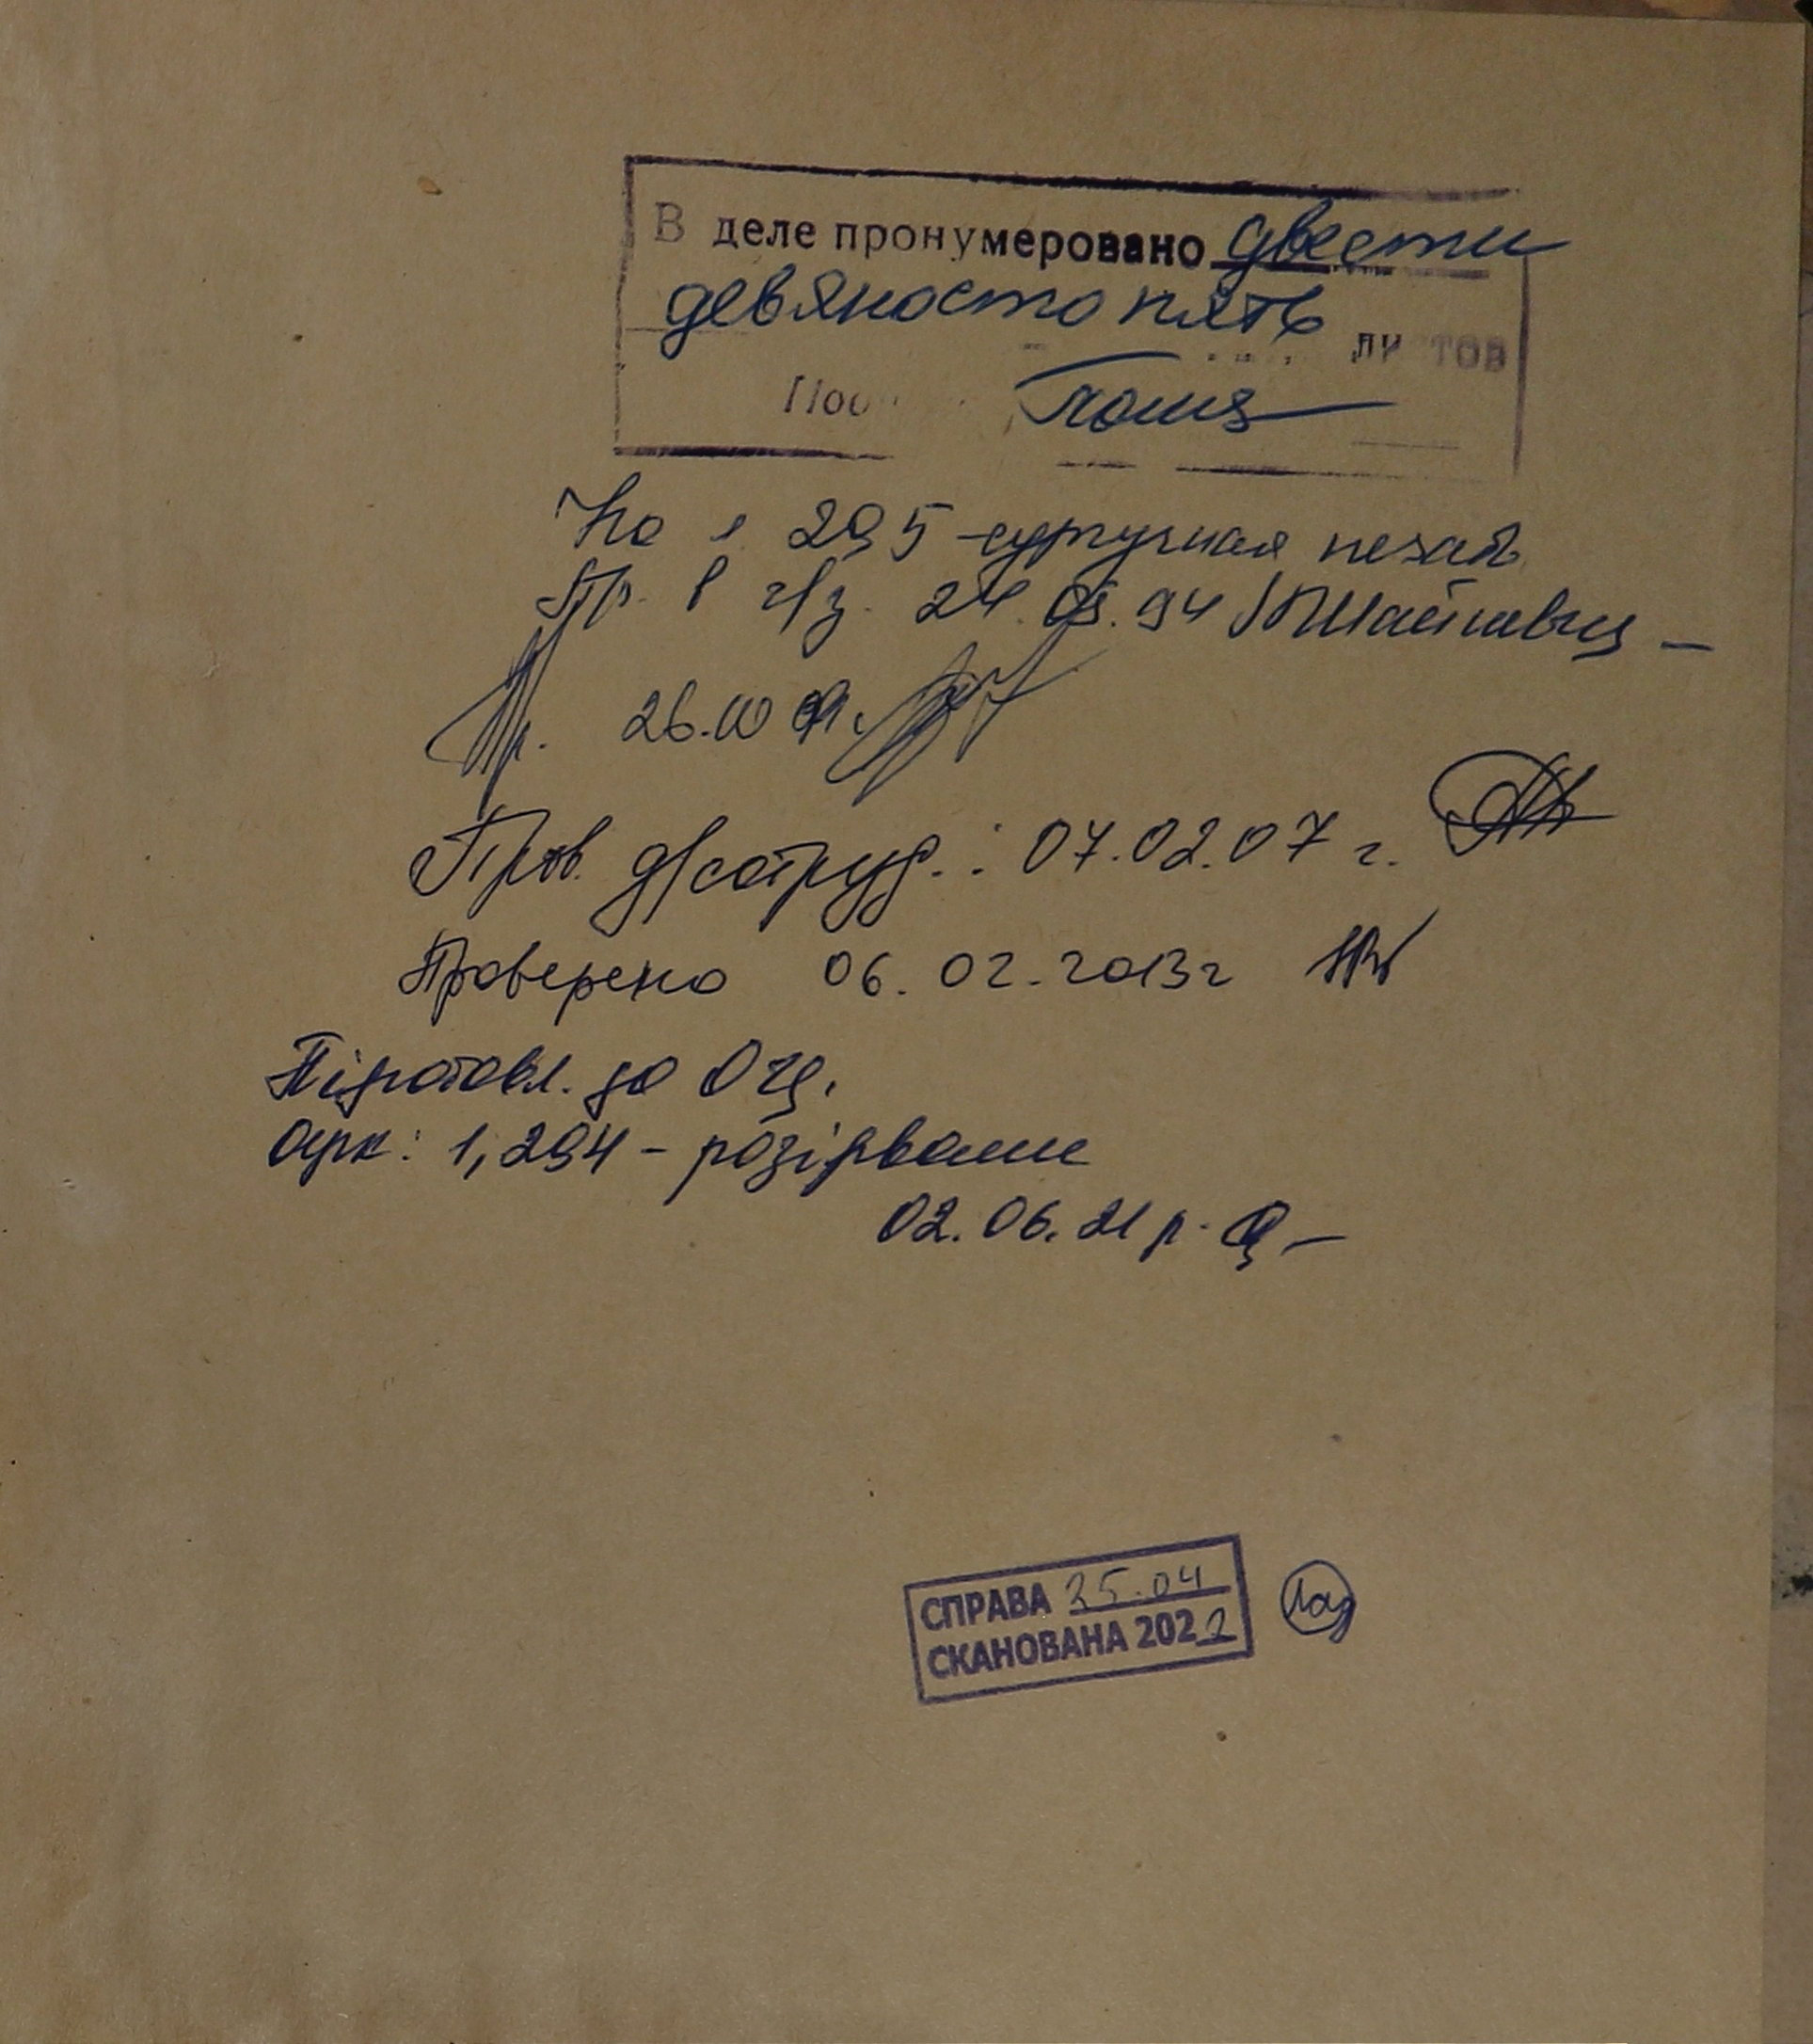 В деле пронумеровано двести
девяносто пять листов
На л 295 - сургучная печать
Пр. в ч/з. 24.03.94
Пр. 26.
Пров. д/сотруд.: 07.02.07 г.
Проверено 06.02.2013 г
Підготовл. до
арк: 1, 294 - розірвани
02.06.21 р.
СПРАВА 25.04
СКАНОВАНА 2022